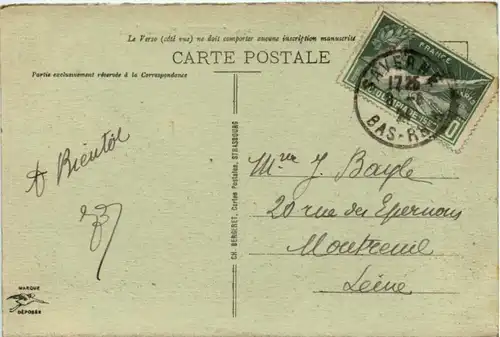 Le Verso (côté vue) ne doit comporter aucune inscription manuscrite
CARTE POSTALE
Partie exclusivement réservée à la Correspondance
FRANCE
SAVERNE
17 25
BAS-RHIN
A Bientôt
CH. BERGERET, Cartes Postales, STRASBOURG
J. Bayle
20 rue des Epernons
Montreuil
Seine
MARQUE
DÉPOSÉE